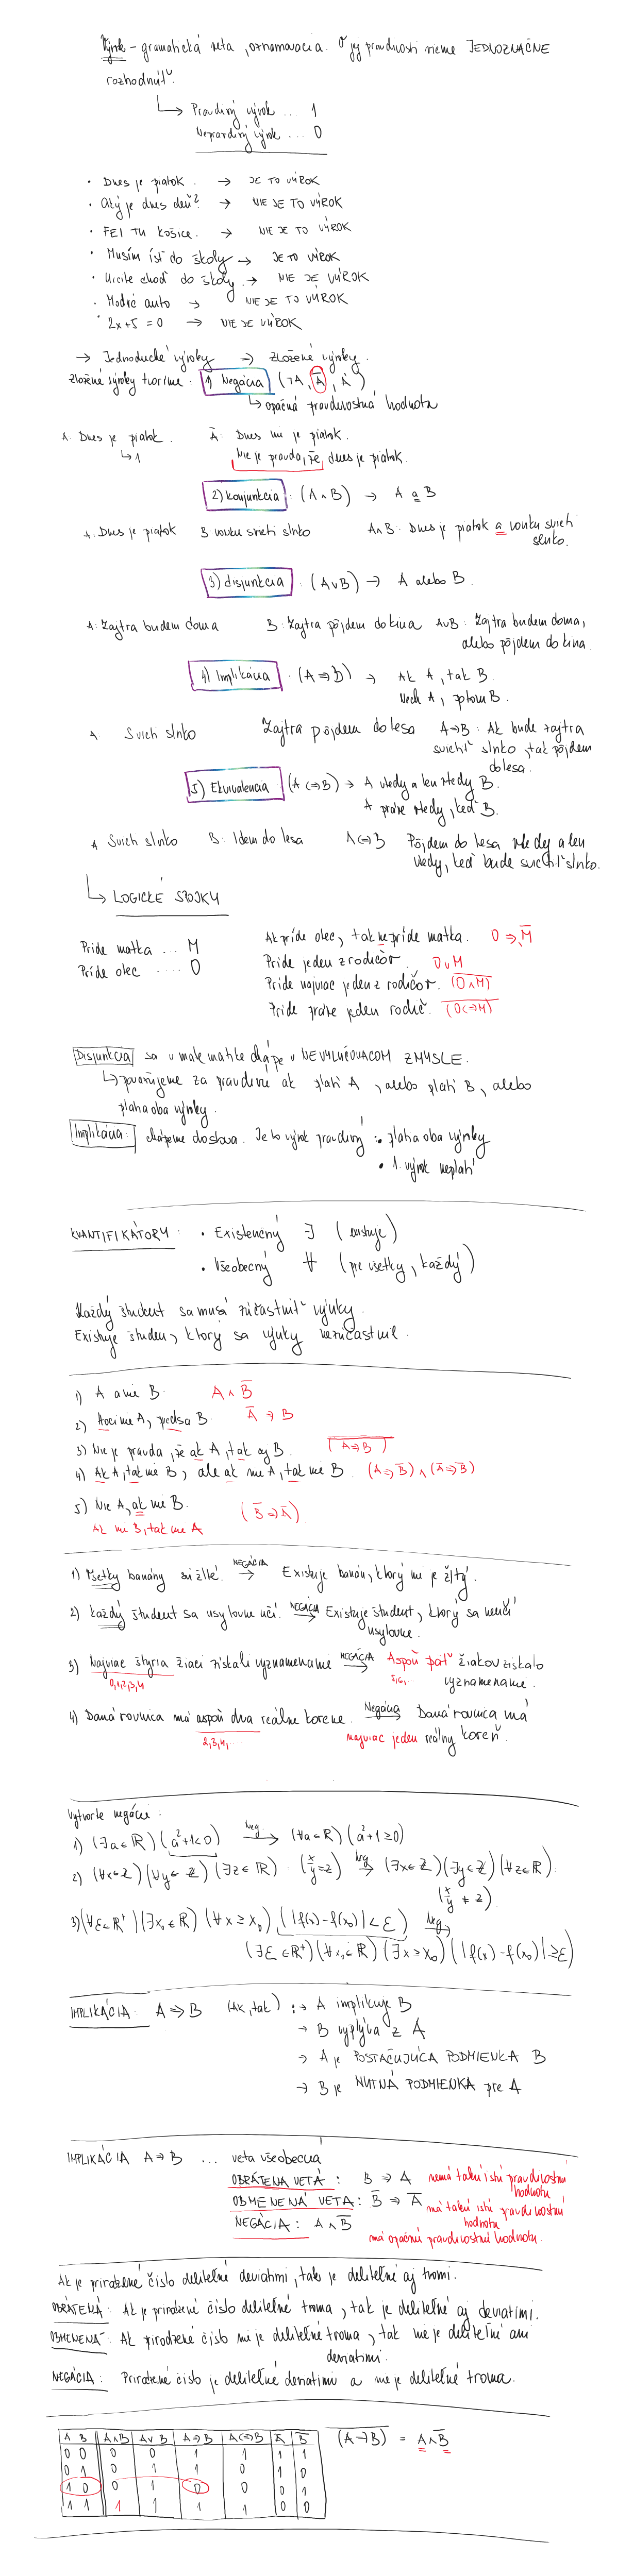 Výrok - gramatická veta, oznamovacia. O jej pravdivosti vieme JEDNOZNAČNE
rozhodnúť.
↳ Pravdivý výrok ... 1
Nepravdivý výrok ... 0
· Dnes je piatok. → JE TO VÝROK
· Aký je dnes deň? → NIE JE TO VÝROK
· FEI TU Košice. → NIE JE TO VÝROK
· Musím ísť do školy → JE TO VÝROK
· Určite choď do školy. → NIE JE VÝROK
· Modré auto → NIE JE TO VÝROK
· 2x+5=0 → NIE JE VÝROK
→ Jednoduché výroky → zložené výroky.
Zložené výroky tvoríme: 1) Negácia (¬A, Ā, A')
↳ opačná pravdivostná hodnota
A: Dnes je piatok. Ā: Dnes nie je piatok.
↳ 1 Nie je pravda, že dnes je piatok.
2) Konjunkcia: (A∧B) → A a B
A: Dnes je piatok B: vonku svieti slnko A∧B: Dnes je piatok a vonku svieti
slnko.
3) disjunkcia: (A∨B) → A alebo B.
A: Zajtra budem doma B: Zajtra pôjdem do kina A∨B: Zajtra budem doma,
alebo pôjdem do kina.
4) Implikácia: (A⇒B) → Ak A, tak B.
Nech A, potom B.
A: Svieti slnko Zajtra pôjdem do lesa A⇒B: Ak bude zajtra
svietiť slnko, tak pôjdem
do lesa.
5) Ekvivalencia: (A⇔B) → A vtedy a len vtedy B.
A práve vtedy, keď B.
A Svieti slnko B: Idem do lesa A⇔B Pôjdem do lesa vtedy a len
vtedy, keď bude svietiť slnko.
↳ LOGICKÉ SPOJKY
Príde matka ... M Ak príde otec, tak nepríde matka. O ⇒ M̅
Príde otec .... O Príde jeden z rodičov. O∨M
Príde najviac jeden z rodičov. \overline{(O∧M)}
Príde práve jeden rodič. \overline{(O⇔M)}
Disjunkcia sa v matematike chápe v NEVYLUČOVACOM ZMYSLE.
↳ považujeme za pravdivú ak platí A, alebo platí B, alebo
platia oba výroky.
Implikácia: chápeme doslova. Je to výrok pravdivý: • platia oba výroky
• 1. výrok neplatí
KVANTIFIKÁTORY: • Existenčný ∃ (existuje)
• Všeobecný ∀ (pre všetky, každý)
Každý študent sa musí zúčastniť výuky.
Existuje študent, ktorý sa výuky nezúčastnil.
1) A a nie B. A∧B̅
2) Hoci nie A, predsa B. A̅ ⇒ B
3) Nie je pravda, že ak A, tak aj B. \overline{(A⇒B)}
4) Ak A, tak nie B, ale ak nie A, tak nie B. (A⇒B̅)∧(A̅⇒B̅)
5) Nie A, ak nie B. (B̅⇒A̅)
Ak nie B, tak nie A
1) Všetky banány sú žlté. NEGÁCIA → Existuje banán, ktorý nie je žltý.
2) Každý študent sa usilovne učí. NEGÁCIA → Existuje študent, ktorý sa neučí
usilovne.
3) Najviac štyria žiaci získali vyznamenanie NEGÁCIA → Aspoň päť žiakov získalo
0,1,2,3,4 5,6,.. vyznamenanie.
4) Daná rovnica má aspoň dva reálne korene. Negácia → Daná rovnica má
2,3,4,.. najviac jeden reálny koreň.
Vytvorte negácie:
1) (∃a∈ℝ)(a²+1<0) neg. → (∀a∈ℝ)(a²+1≥0)
2) (∀x∈ℤ)(∀y∈ℤ)(∃z∈ℝ) (x/y=z) neg → (∃x∈ℤ)(∃y∈ℤ)(∀z∈ℝ)
(x/y ≠ z)
3) (∀ε∈ℝ⁺)(∃x₀∈ℝ)(∀x≥x₀)(|f(x)-f(x₀)|<ε) neg →
(∃ε∈ℝ⁺)(∀x₀∈ℝ)(∃x≥x₀)(|f(x)-f(x₀)|≥ε)
IMPLIKÁCIA: A⇒B (Ak, tak): → A implikuje B
→ B vyplýva z A
→ A je POSTAČUJÚCA PODMIENKA B
→ B je NUTNÁ PODMIENKA pre A
IMPLIKÁCIA A⇒B ... veta všeobecná
OBRÁTENÁ VETA: B ⇒ A nemá takú istú pravdivostnú
hodnotu
OBMENENÁ VETA: B̅ ⇒ A̅ má takú istú pravdivostnú
hodnotu
NEGÁCIA: A∧B̅ má opačnú pravdivostnú hodnotu.
Ak je prirodzené číslo deliteľné deviatimi, tak je deliteľné aj tromi.
OBRÁTENÁ: Ak je prirodzené číslo deliteľné troma, tak je deliteľné aj deviatimi.
OBMENENÁ: Ak prirodzené číslo nie je deliteľné troma, tak nie je deliteľné ani
deviatimi.
NEGÁCIA: Prirodzené číslo je deliteľné deviatimi a nie je deliteľné troma.
A B A∧B A∨B A⇒B A⇔B A̅ B̅ \overline{(A⇒B)} = A∧B̅
0 0 0 0 1 1 1 1
0 1 0 1 1 0 1 0
1 0 0 1 0 0 0 1
1 1 1 1 1 1 0 0